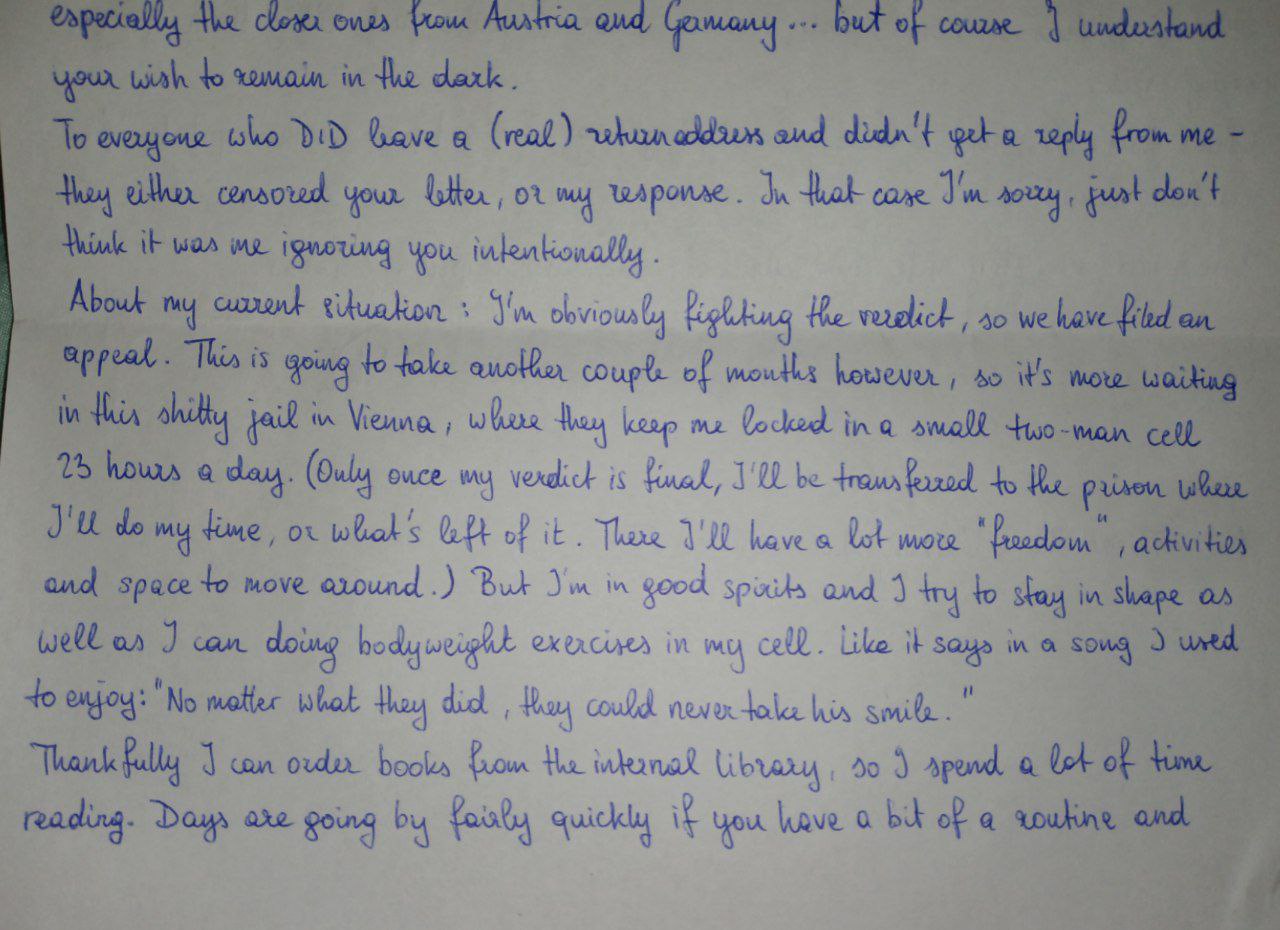 especially the closer ones from Austria and Germany... but of course I understand
your wish to remain in the dark.
To everyone who DID leave a (real) return address and didn't get a reply from me -
they either censored your letter, or my response. In that case I'm sorry, just don't
think it was me ignoring you intentionally.
About my current situation: I'm obviously fighting the verdict, so we have filed an
appeal. This is going to take another couple of months however, so it's more waiting
in this shitty jail in Vienna, where they keep me locked in a small two-man cell
23 hours a day. (Only once my verdict is final, I'll be transferred to the prison where
I'll do my time, or what's left of it. There I'll have a lot more "freedom", activities
and space to move around.) But I'm in good spirits and I try to stay in shape as
well as I can doing bodyweight exercises in my cell. Like it says in a song I used
to enjoy: "No matter what they did, they could never take his smile."
Thankfully I can order books from the internal library, so I spend a lot of time
reading. Days are going by fairly quickly if you have a bit of a routine and